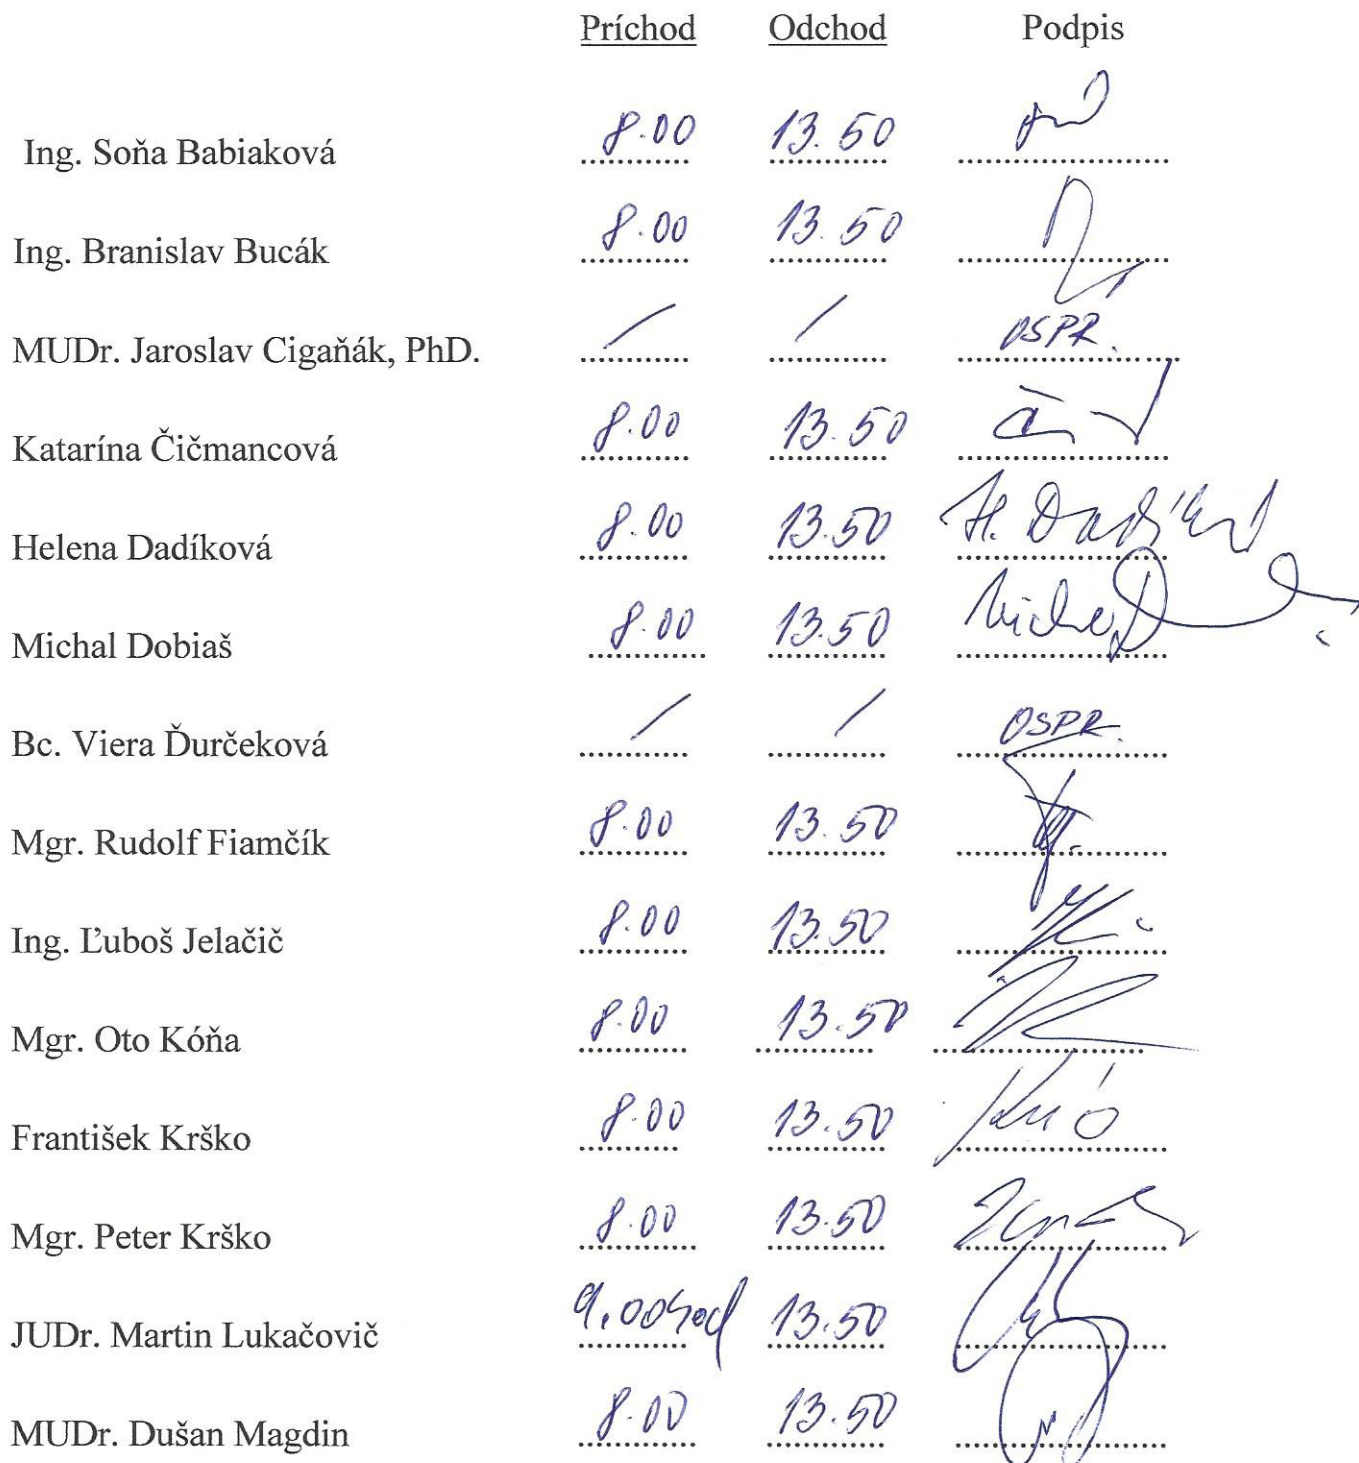 Príchod Odchod Podpis
Ing. Soňa Babiaková 8.00 13.50
Ing. Branislav Bucák 8.00 13.50
MUDr. Jaroslav Cigaňák, PhD. / / OSPR.
Katarína Čičmancová 8.00 13.50
Helena Dadíková 8.00 13.50 H. Dadíková
Michal Dobiaš 8.00 13.50
Bc. Viera Ďurčeková / / OSPR.
Mgr. Rudolf Fiamčík 8.00 13.50
Ing. Ľuboš Jelačič 8.00 13.50
Mgr. Oto Kóňa 8.00 13.50
František Krško 8.00 13.50
Mgr. Peter Krško 8.00 13.50
JUDr. Martin Lukačovič 9.00hod 13.50
MUDr. Dušan Magdin 8.00 13.50